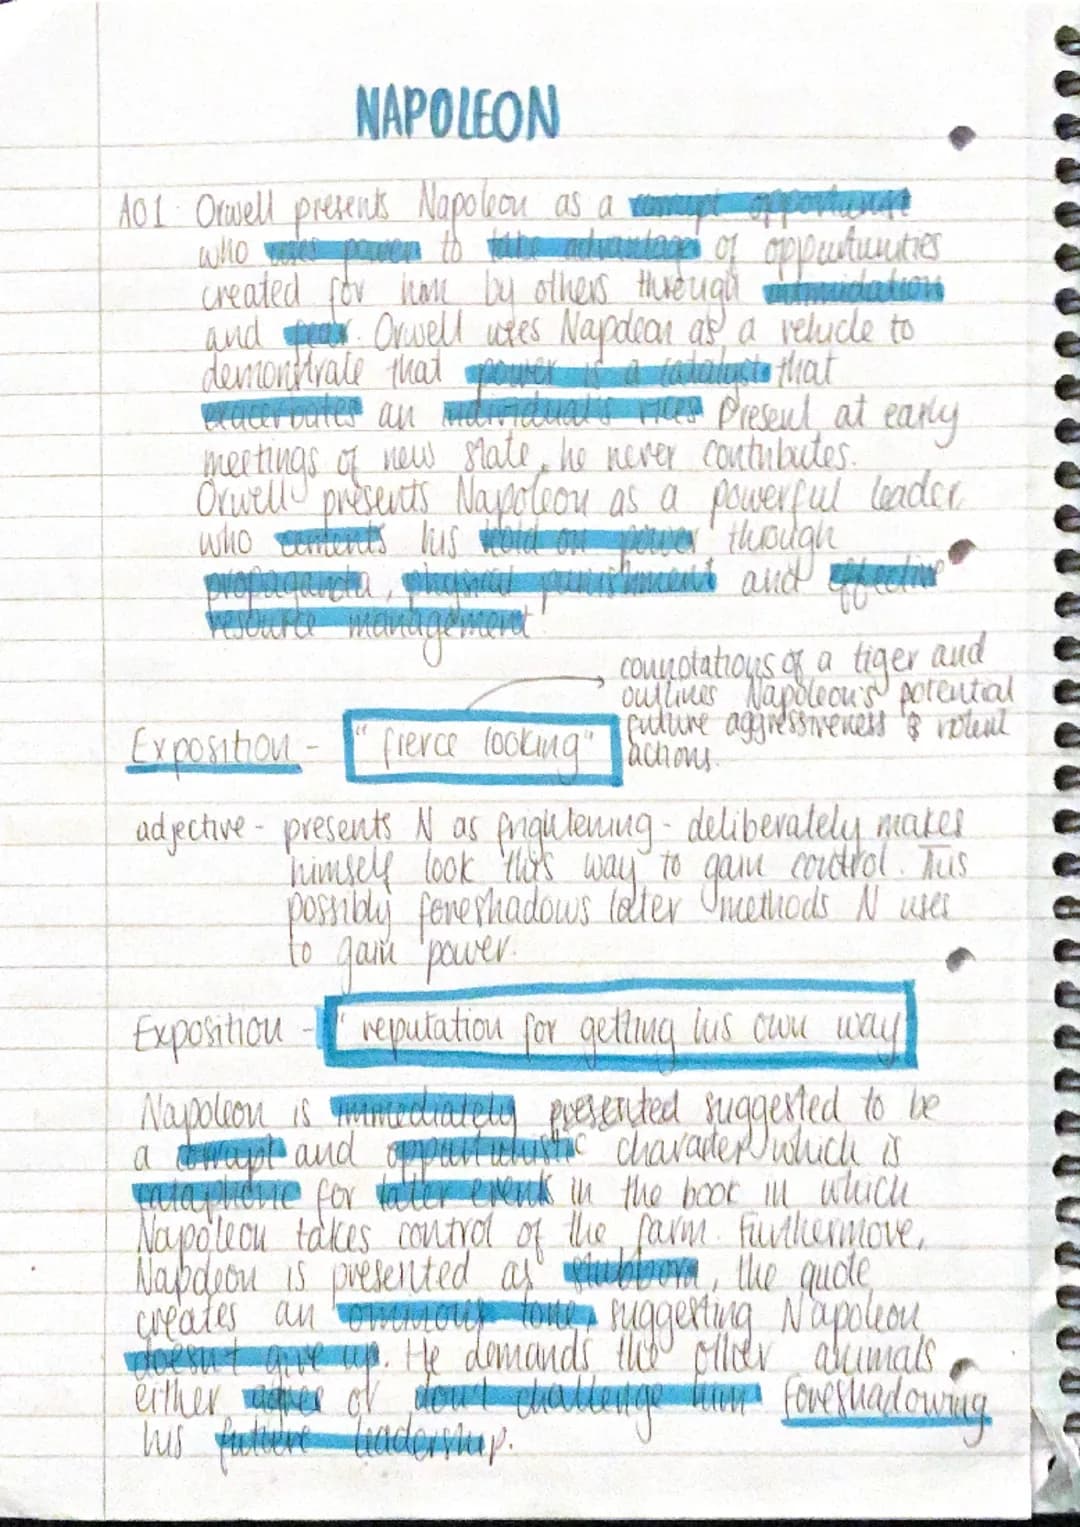 NAPOLEON
AO1 Orwell presents Napoleon as a corrupt opportunist
who uses power to take advantage of oppurtunities
created for him by others through intimidation
and fear. Orwell uses Napoleon as a vehicle to
demonstrate that power is a catalyst that
exacerbates an individual's vices Present at early
meetings of new state, he never contributes.
Orwell presents Napoleon as a powerful leader
who cements his hold on power through
propaganda, physical punishment and effective
resource management
connotations of a tiger and
outlines Napoleon's potential
future aggressiveness & violent
actions.
Exposition - "fierce looking"
adjective - presents N as frightening - deliberately makes
himself look this way to gain control. This
possibly foreshadows later methods N uses
to gain power.
Exposition - "reputation for getting his own way
Napoleon is immediately presented suggested to be
a corrupt and opportunistic character which is
cataphoric for later events in the book in which
Napoleon takes control of the farm. Furthermore,
Napoleon is presented as stubborn, the quote
creates an ominous tone, suggesting Napoleon
doesn't give up. He demands the other animals
either agree or don't challenge him foreshadowing
his future leadership.